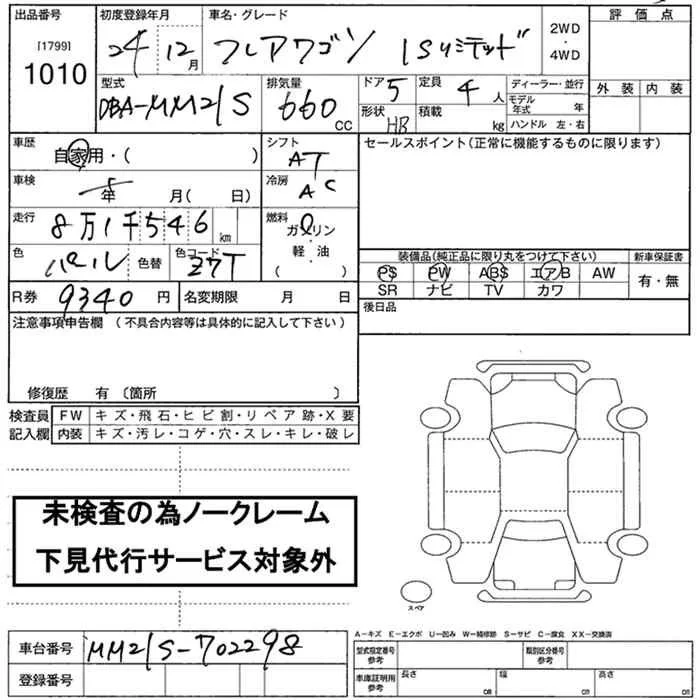 出品番号 初度登録年月 車名・グレード 評価点
[1799]
1010
24年12月 フレアワゴン ISリミテッド 2WD・4WD
外装 内装
型式 排気量 ドア 5 定員 4人 ディーラー・並行
DBA-MM21S 660 CC 形状 HB 積載 kg モデル年式 年
ハンドル 左・右
車歴 自家用・( ) シフト AT セールスポイント(正常に機能するものに限ります)
車検 年 月( 日) 冷房 AC
走行 8万1千546km 燃料 ガソリン
軽・油
( )
色 パール 色替 色コード Z7T
装備品(純正品に限り丸をつけて下さい) 新車保証書
PS PW ABS エアB AW 有・無
SR ナビ TV カワ
R券 9340円 名変期限 月 日 後日品
注意事項申告欄 (不具合内容等は具体的に記入して下さい)
修復歴 有 〔箇所 〕
検査員 FW キズ・飛石・ヒビ割・リペア跡・X要
記入欄 内装 キズ・汚レ・コゲ・穴・スレ・キレ・破レ
未検査の為ノークレーム
下見代行サービス対象外
スペア
A-キズ E-エクボ U-凹み W-補修跡 S-サビ C-腐食 XX-交換済
車台番号 MM21S-702298 型式指定番号 参考 類別区分番号 参考
登録番号 車庫証明用 参考 長さ cm 幅 cm 高さ cm